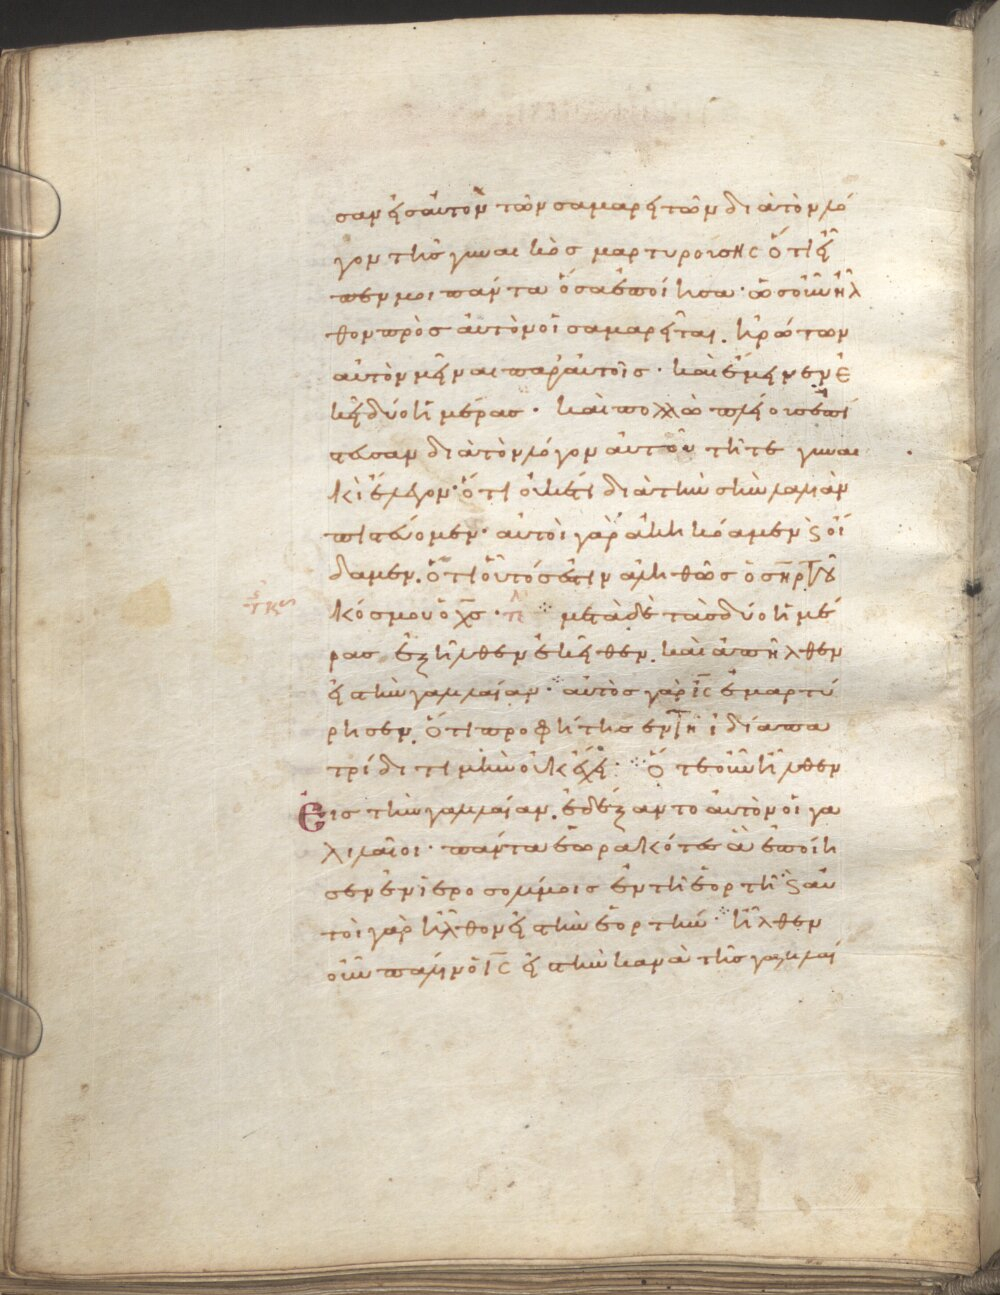 σαν εἰς αὐτὸν τῶν σαμαρειτῶν διὰ τὸν λό
γον τῆς γυναικὸς μαρτυρούσης ὅτι εἶ
πεν μοι πάντα ὅσα ἐποίησα· ὡς οὖν ἦλ
θον πρὸς αὐτὸν οἱ σαμαρεῖται. ἠρώτων
αὐτὸν μεῖναι παρ' αὐτοῖς· καὶ ἔμεινεν ἐ
κεῖ δύο ἡμέρας· καὶ πολλῶ πλείους ἐπί
τευσαν διὰ τὸν λόγον αὐτοῦ τῆ τε γυναι
κὶ ἔλεγον· ὅτι οὐκέτι διὰ τὴν σὴν λαλιὰν
πιτεύομεν· αὐτοὶ γὰρ ἀκηκόαμεν ϗ οἴ
δαμεν. ὅτι οὗτός ἐστιν ἀληθῶς ὁ σηρ τοῦ
κόσμου ὁ χς· μετὰ δὲ τὰς δύο ἡμέ
ρας ἐξῆλθεν ἐκεῖθεν. καὶ ἀπῆλθεν
εἰς τὴν γαλιλαίαν· αὐτὸς γὰρ ις ἐμαρτύ
ρησεν. ὅτι προφήτης ἐν τῆ ἰδία πα
τρίδι τιμὴν οὐκ ἔχει· ὅτε οὖν ἦλθεν
εἰς τὴν γαλιλαίαν. ἐδέξαντο αὐτὸν οἱ γα
λιλαῖοι· πάντα ἑωρακότες ἃ ἐποίη
σεν ἐν ἱεροσολύμοις ἐν τῆ ἑορτῆ· ϗ αὐ
τοὶ γὰρ ἦλθον εἰς τὴν ἑορτήν· ἦλθεν
οὖν πάλιν ὁ ις εἰς τὴν κανὰ τῆς γαλιλαί